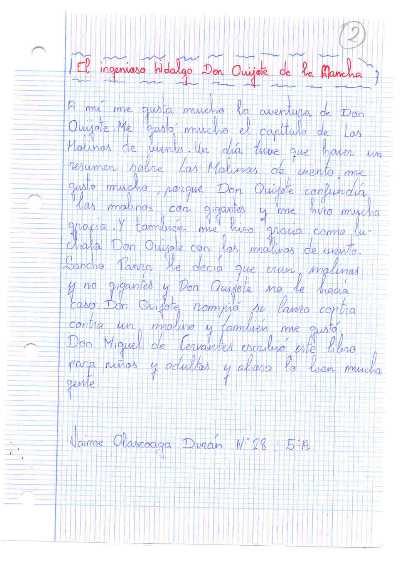 2
El ingenioso Hidalgo Don Quijote de la Mancha
A mí me gusta mucho la aventura de Don
Quijote. Me gustó mucho el capítulo de Los
Molinos de viento. Un día tuve que hacer un
resumen sobre Los Molinos de viento, me
gustó mucho, porque Don Quijote confundía
las molinos con gigantes y me hizo mucha
gracia. Y también me hizo gracia como lu-
chaba Don Quijote con los molinos de viento.
Sancho Panza le decía que eran molinos
y no gigantes y Don Quijote no le hacía
caso. Don Quijote rompió su lanza contra
contra un molino y también me gustó.
Don Miguel de Cervantes escribió este libro
para niños y adultos y ahora lo leen mucha
gente.
Jaime Olascoaga Durán Nº 28 5ºA